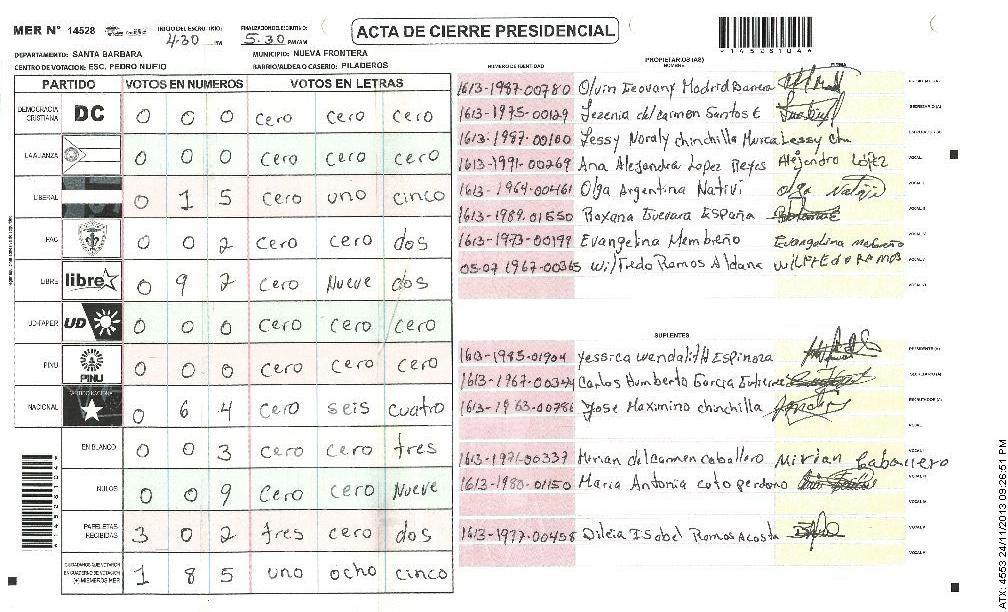 MER N° 14528 INICIO DEL ESCRUTINIO: 4:30 PM FINALIZACION DEL ESCRUTINIO: 5:30 PM/AM ACTA DE CIERRE PRESIDENCIAL
DEPARTAMENTO: SANTA BARBARA MUNICIPIO: NUEVA FRONTERA
CENTRO DE VOTACION: ESC. PEDRO NUFIO BARRIO/ALDEA O CASERIO: PILADEROS
PARTIDO VOTOS EN NUMEROS VOTOS EN LETRAS
DEMOCRACIA CRISTIANA DC 0 0 0 cero cero cero
LA ALIANZA 0 0 0 cero cero cero
LIBERAL 0 1 5 cero uno cinco
PAC 0 0 2 cero cero dos
LIBRE libre 0 9 2 cero Nueve dos
UD-FAPER UD 0 0 0 cero cero cero
PINU PINU 0 0 0 cero cero cero
NACIONAL 0 6 4 cero seis cuatro
EN BLANCO 0 0 3 cero cero tres
NULOS 0 0 9 cero cero Nueve
PAPELETAS RECIBIDAS 3 0 2 tres cero dos
CIUDADANOS QUE VOTARON EN CUADERNO DE VOTACION (+) MIEMBROS MER 1 8 5 uno ocho cinco
PROPIETARIOS (AS)
NUMERO DE IDENTIDAD NOMBRE FIRMA
1613-1987-00780 Olvin Geovany Madrid Barrera
1613-1975-00129 Yezenia del carmen Santos E
1613-1987-00100 Lessy Noraly chinchilla Lessy
1613-1991-00269 Ana Alejandra Lopez Reyes Alejandra López
1613-1964-00461 Olga Argentina Nativi Olga Nativi
1613-1989-01550 Roxana Guevara España
1613-1973-00199 Evangelina Membreño Evangelina membreño
05-07 1967-00365 Wilfredo Ramos Aldana WILFREDO RAMOS
SUPLENTES
1613-1985-01904 Yessica wendalith Espinoza
1613-1967-00344 Carlos Humberto Garcia Gutierre
1613-1963-00786 Jose Maximino chinchilla
1613-1971-00337 Mirian del carmen caballero Mirian Caballero
1613-1980-01150 Maria Antonia coto perdomo
1613-1977-00458 Dilcia Isabel Ramos Acosta
ATX: 4553 24/11/2013 09:26:51 PM